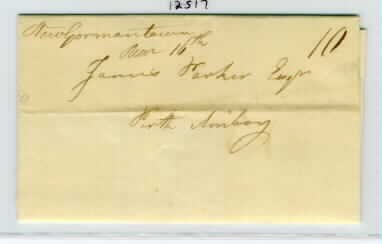 12517
New Germantown
Mar 16th
10
James Parker Esqr
Perth Amboy